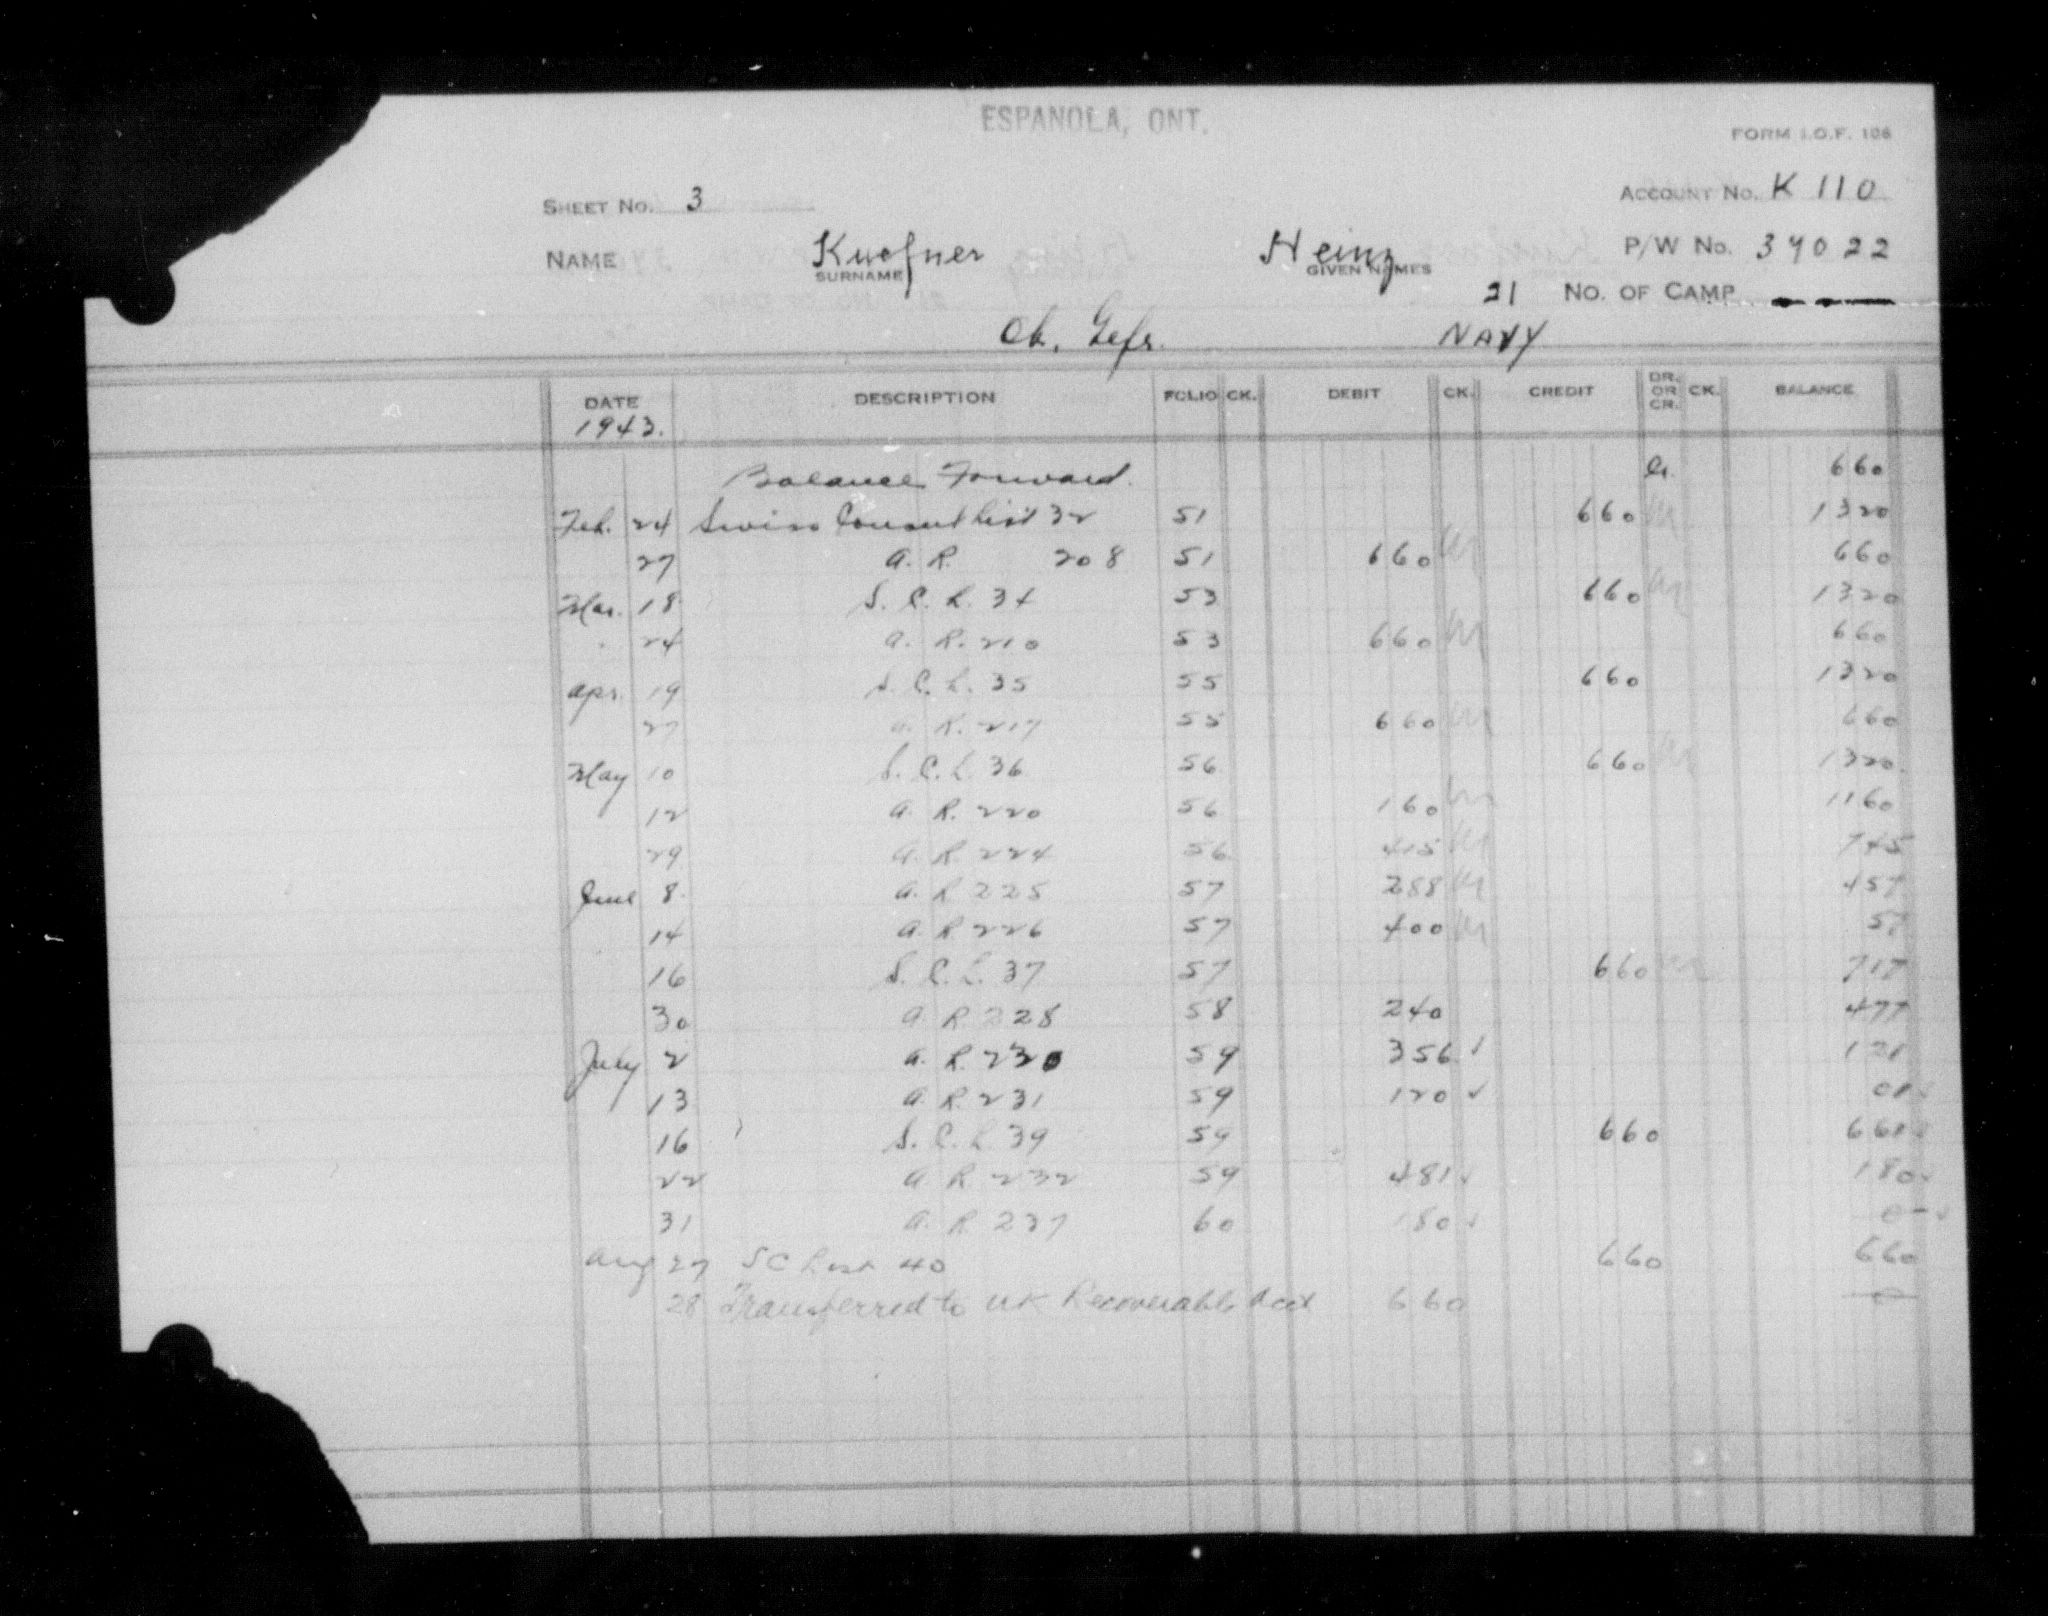 ESPANOLA, ONT.
FORM I.O.F. 106
SHEET NO. 3 ACCOUNT NO. K 110
NAME Kuefner Heinz P/W NO. 39022
SURNAME GIVEN NAMES
21 NO. OF CAMP
Ob. Gefr. NAVY
DATE DESCRIPTION FOLIO CK. DEBIT CK. CREDIT DR. OR CR. CK. BALANCE
1943.
Balance Forward. Cr. 660
Feb. 24 Swiss Consul List 32 51 660 1320
27 A. R. 208 51 660 660
Mar. 18 S. C. L. 34 53 660 1320
24 A. R. 210 53 660 660
Apr. 19 S. C. L. 35 55 660 1320
27 A. R. 217 55 660 660
May 10 S. C. L. 36 56 660 1320
12 A. R. 220 56 160 1160
29 A. R. 224 56 415 745
June 8 A. R. 225 57 288 457
14 A. R. 226 57 400 57
16 S. C. L. 37 57 660 717
30 A. R. 228 58 240 477
July 2 A. R. 230 59 356 ✓ 121
13 A. R. 231 59 120 ✓ 01 ✓
16 S. C. L. 39 59 660 661 ✓
22 A. R. 232 59 481 ✓ 180 ✓
31 A. R. 237 60 180 ✓ 0 - ✓
Aug 27 SC List 40 660 660
28 Transferred to UK Recoverable Acct 660 0